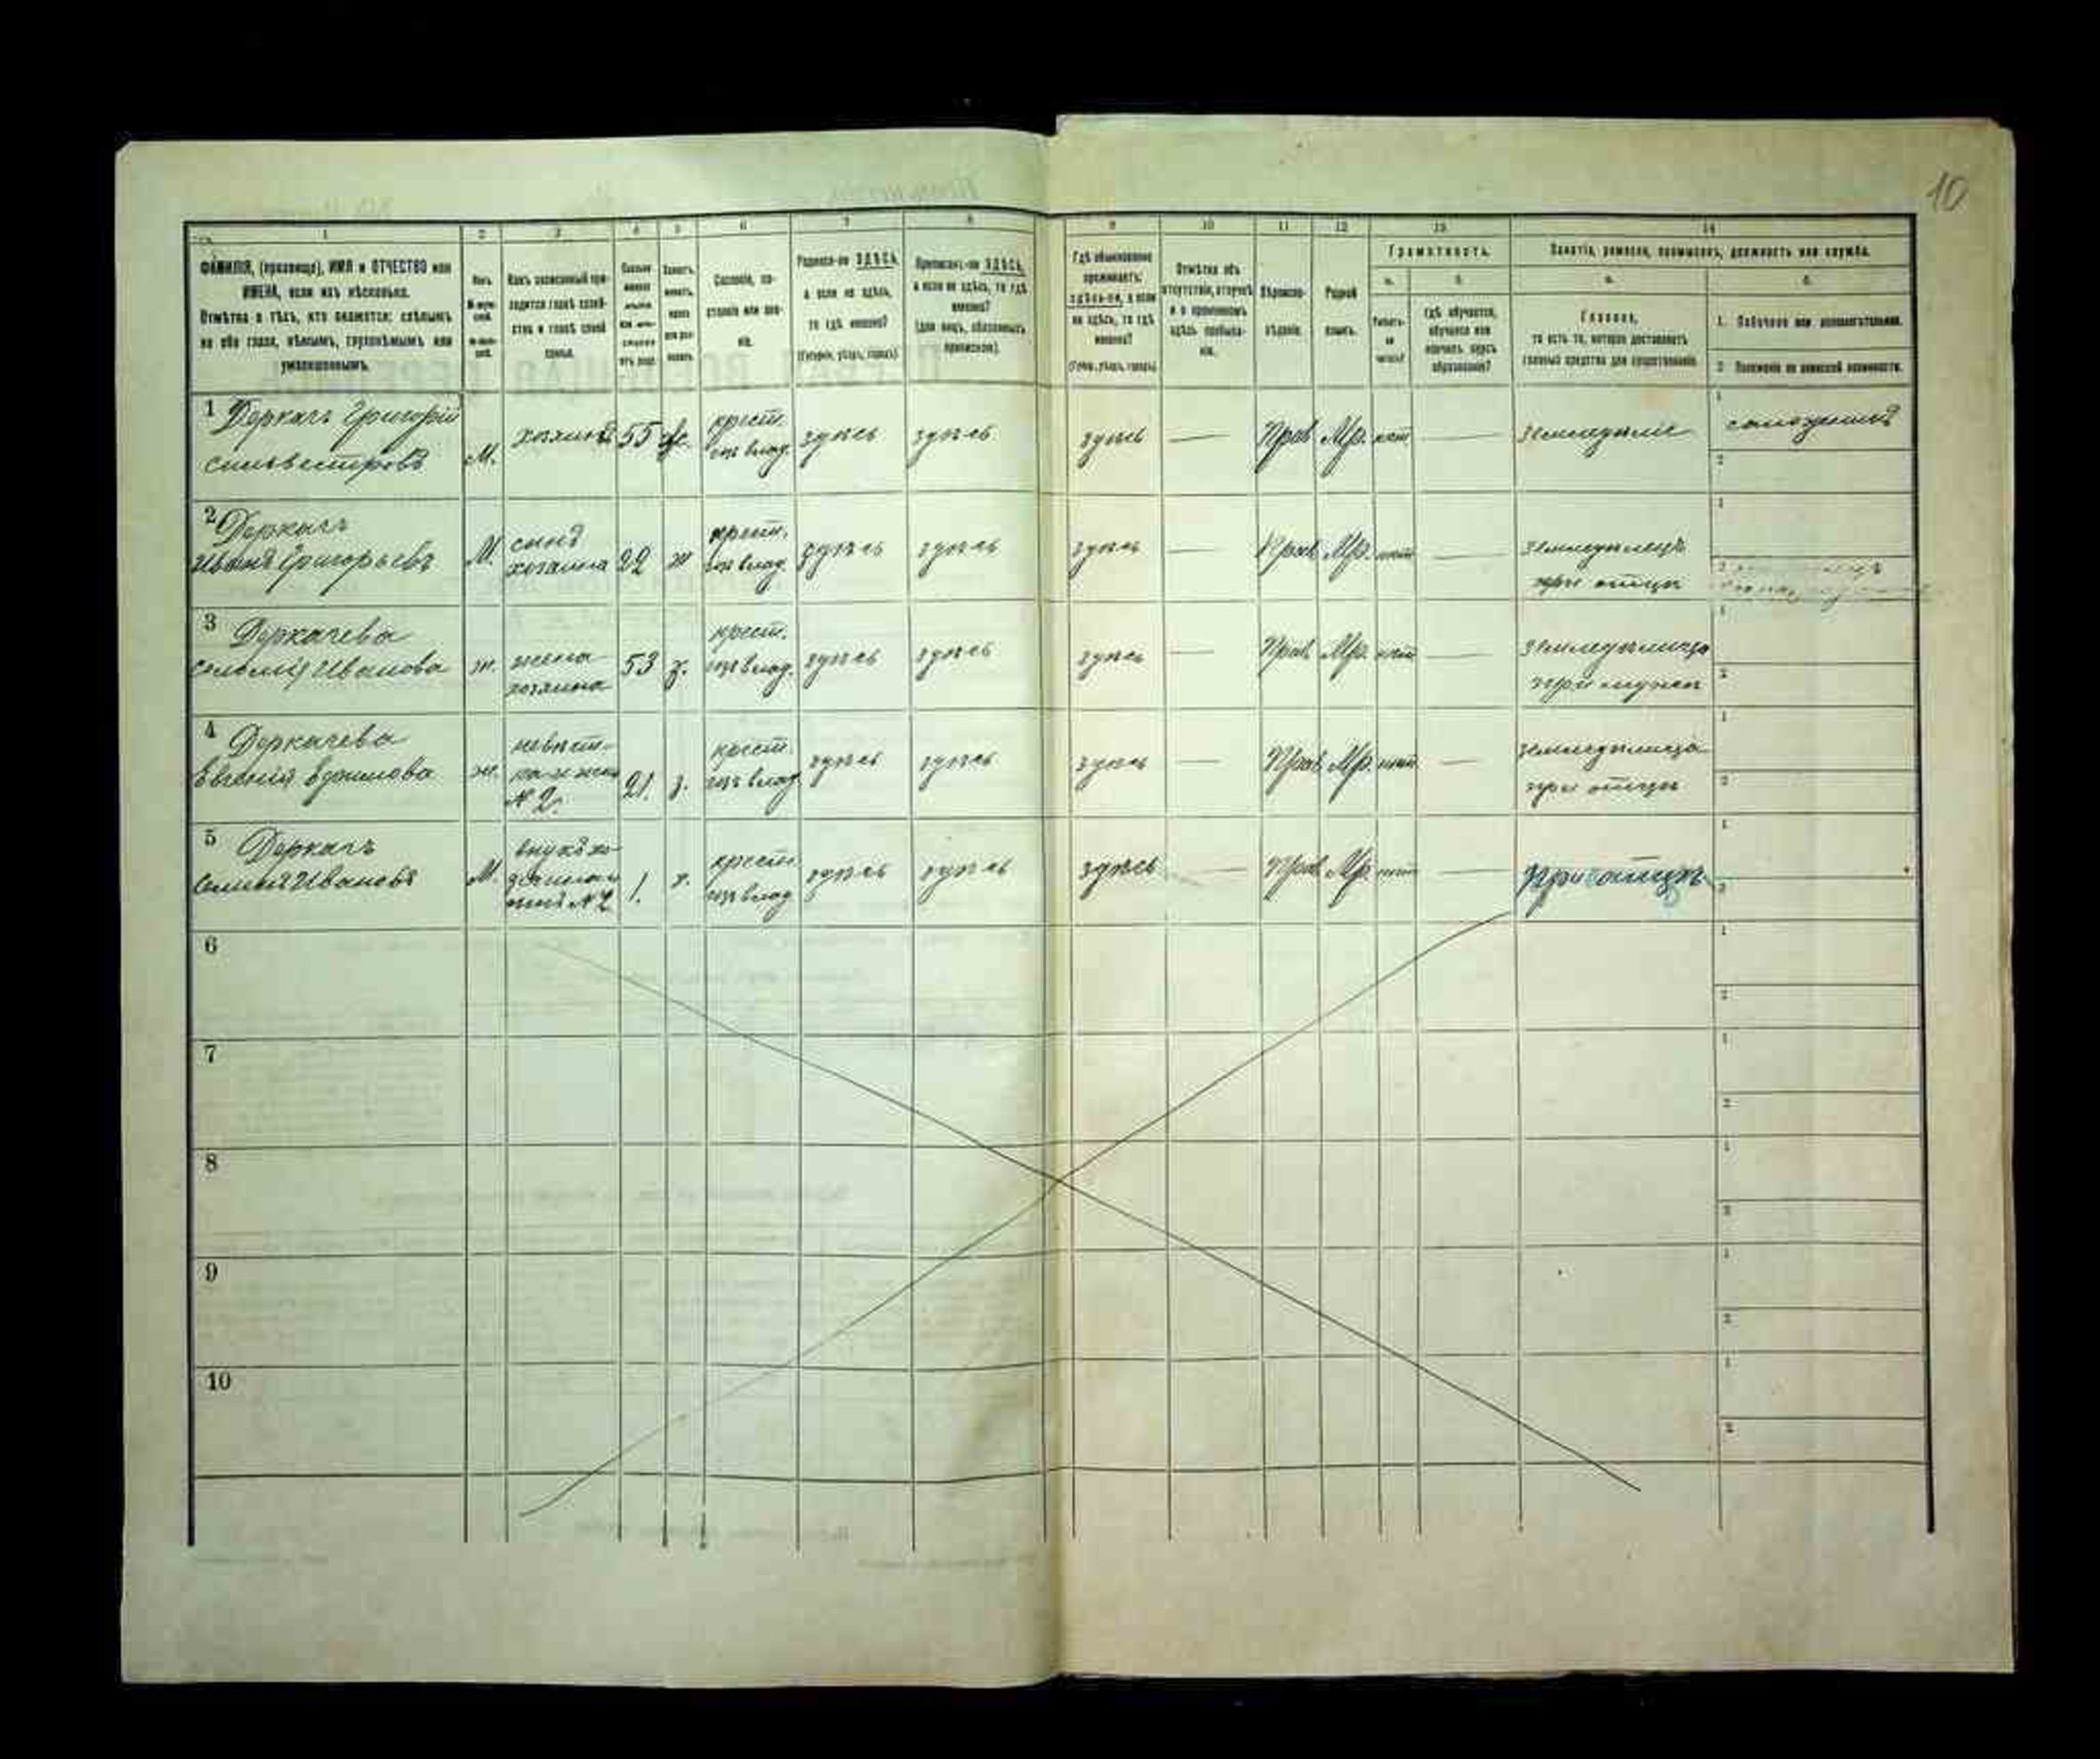 10
1 2 3 4 5 6 7 8 9 10 11 12 13 14
ФАМИЛІЯ, (прозвище), ИМЯ и ОТЧЕСТВО или
ИМЕНА, если ихъ нѣсколько.
Отмѣтка о тѣхъ, кто окажется: слѣпымъ
на оба глаза, нѣмымъ, глухонѣмымъ или
умалишеннымъ.
Полъ.
Какъ записанный при-
ходится главѣ хозяй-
ства и главѣ своей
семьи.
Сословіе, со-
стояніе или зва-
ніе.
Родился-ли ЗДѢСЬ,
а если не здѣсь,
то гдѣ именно?
(Губернія, уѣздъ, городъ)
Приписанъ-ли ЗДѢСЬ,
а если не здѣсь, то гдѣ
именно?
(для лицъ, обязанныхъ
припиской).
Гдѣ обыкновенно
проживаетъ:
здѣсь-ли, а если
не здѣсь, то гдѣ
именно?
(Губер., уѣздъ, городъ)
Отмѣтка объ
отсутствіи, отлучкѣ
и о временномъ
здѣсь пребыва-
ніи.
Вѣроиспо-
вѣданіе.
Родной
языкъ.
Грамотность.
а. б.
Умѣетъ-
ли
читать?
Гдѣ обучается,
обучался или
кончилъ курсъ
образованія?
Занятіе, ремесло, промыселъ, должность или служба.
а. б.
Главное,
то есть то, которое доставляетъ
главныя средства для существованія.
1. Побочное или вспомогательное.
2. Положеніе по воинской повинности.
1 Деркачъ Григорій
Сильвестровъ
М. хозяинъ 55 ж. крест.
изъ влад. здѣсь здѣсь здѣсь — Прав. Мр. нѣтъ — Земледѣліе
2 Деркачъ
Иванъ Григорьевъ
М. сынъ
хозяина 22 ж крест.
изъ влад. здѣсь здѣсь здѣсь — Прав. Мр. нѣтъ — земледѣлецъ
при отцѣ
3 Деркачева
Соломія Иванова
ж. жена
хозяина 53 з. крест.
изъ влад. здѣсь здѣсь здѣсь — Прав. Мр. нѣтъ — земледѣлица
при мужѣ
4 Деркачева
Евгенія Ефимова
ж. невѣст-
ка жена
№ 2. 21. з. крест.
изъ влад. здѣсь здѣсь здѣсь — Прав. Мр. нѣтъ — земледѣлица
при отцѣ
5 Деркачъ
Семенъ Ивановъ
М. внукъ хо-
№ 2 1. х. крест.
изъ влад. здѣсь здѣсь здѣсь — Прав. Мр. нѣтъ — при отцѣ
6
7
8
9
10